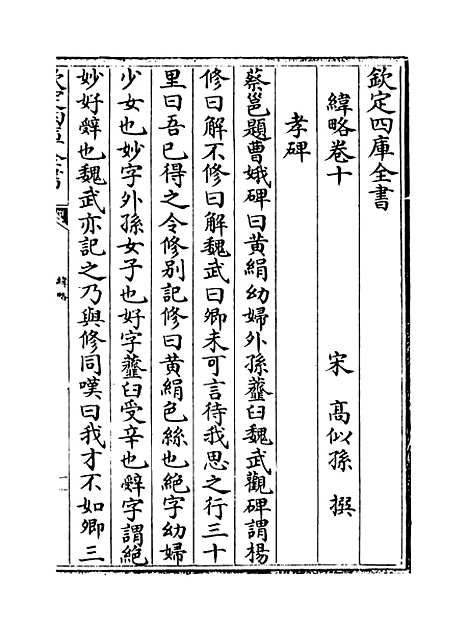 欽定四庫全書
緯略卷十
宋 高似孫 撰
孝碑
蔡邕題曹娥碑曰黃絹幼婦外孫虀臼魏武觀碑謂楊
修曰解不修曰解魏武曰卿未可言待我思之行三十
里曰吾已得之令修別記修曰黃絹色絲也絕字幼婦
少女也妙字外孫女子也好字虀臼受辛也辤字謂絕
妙好辤也魏武亦記之乃與修同嘆曰我才不如卿三
緯略